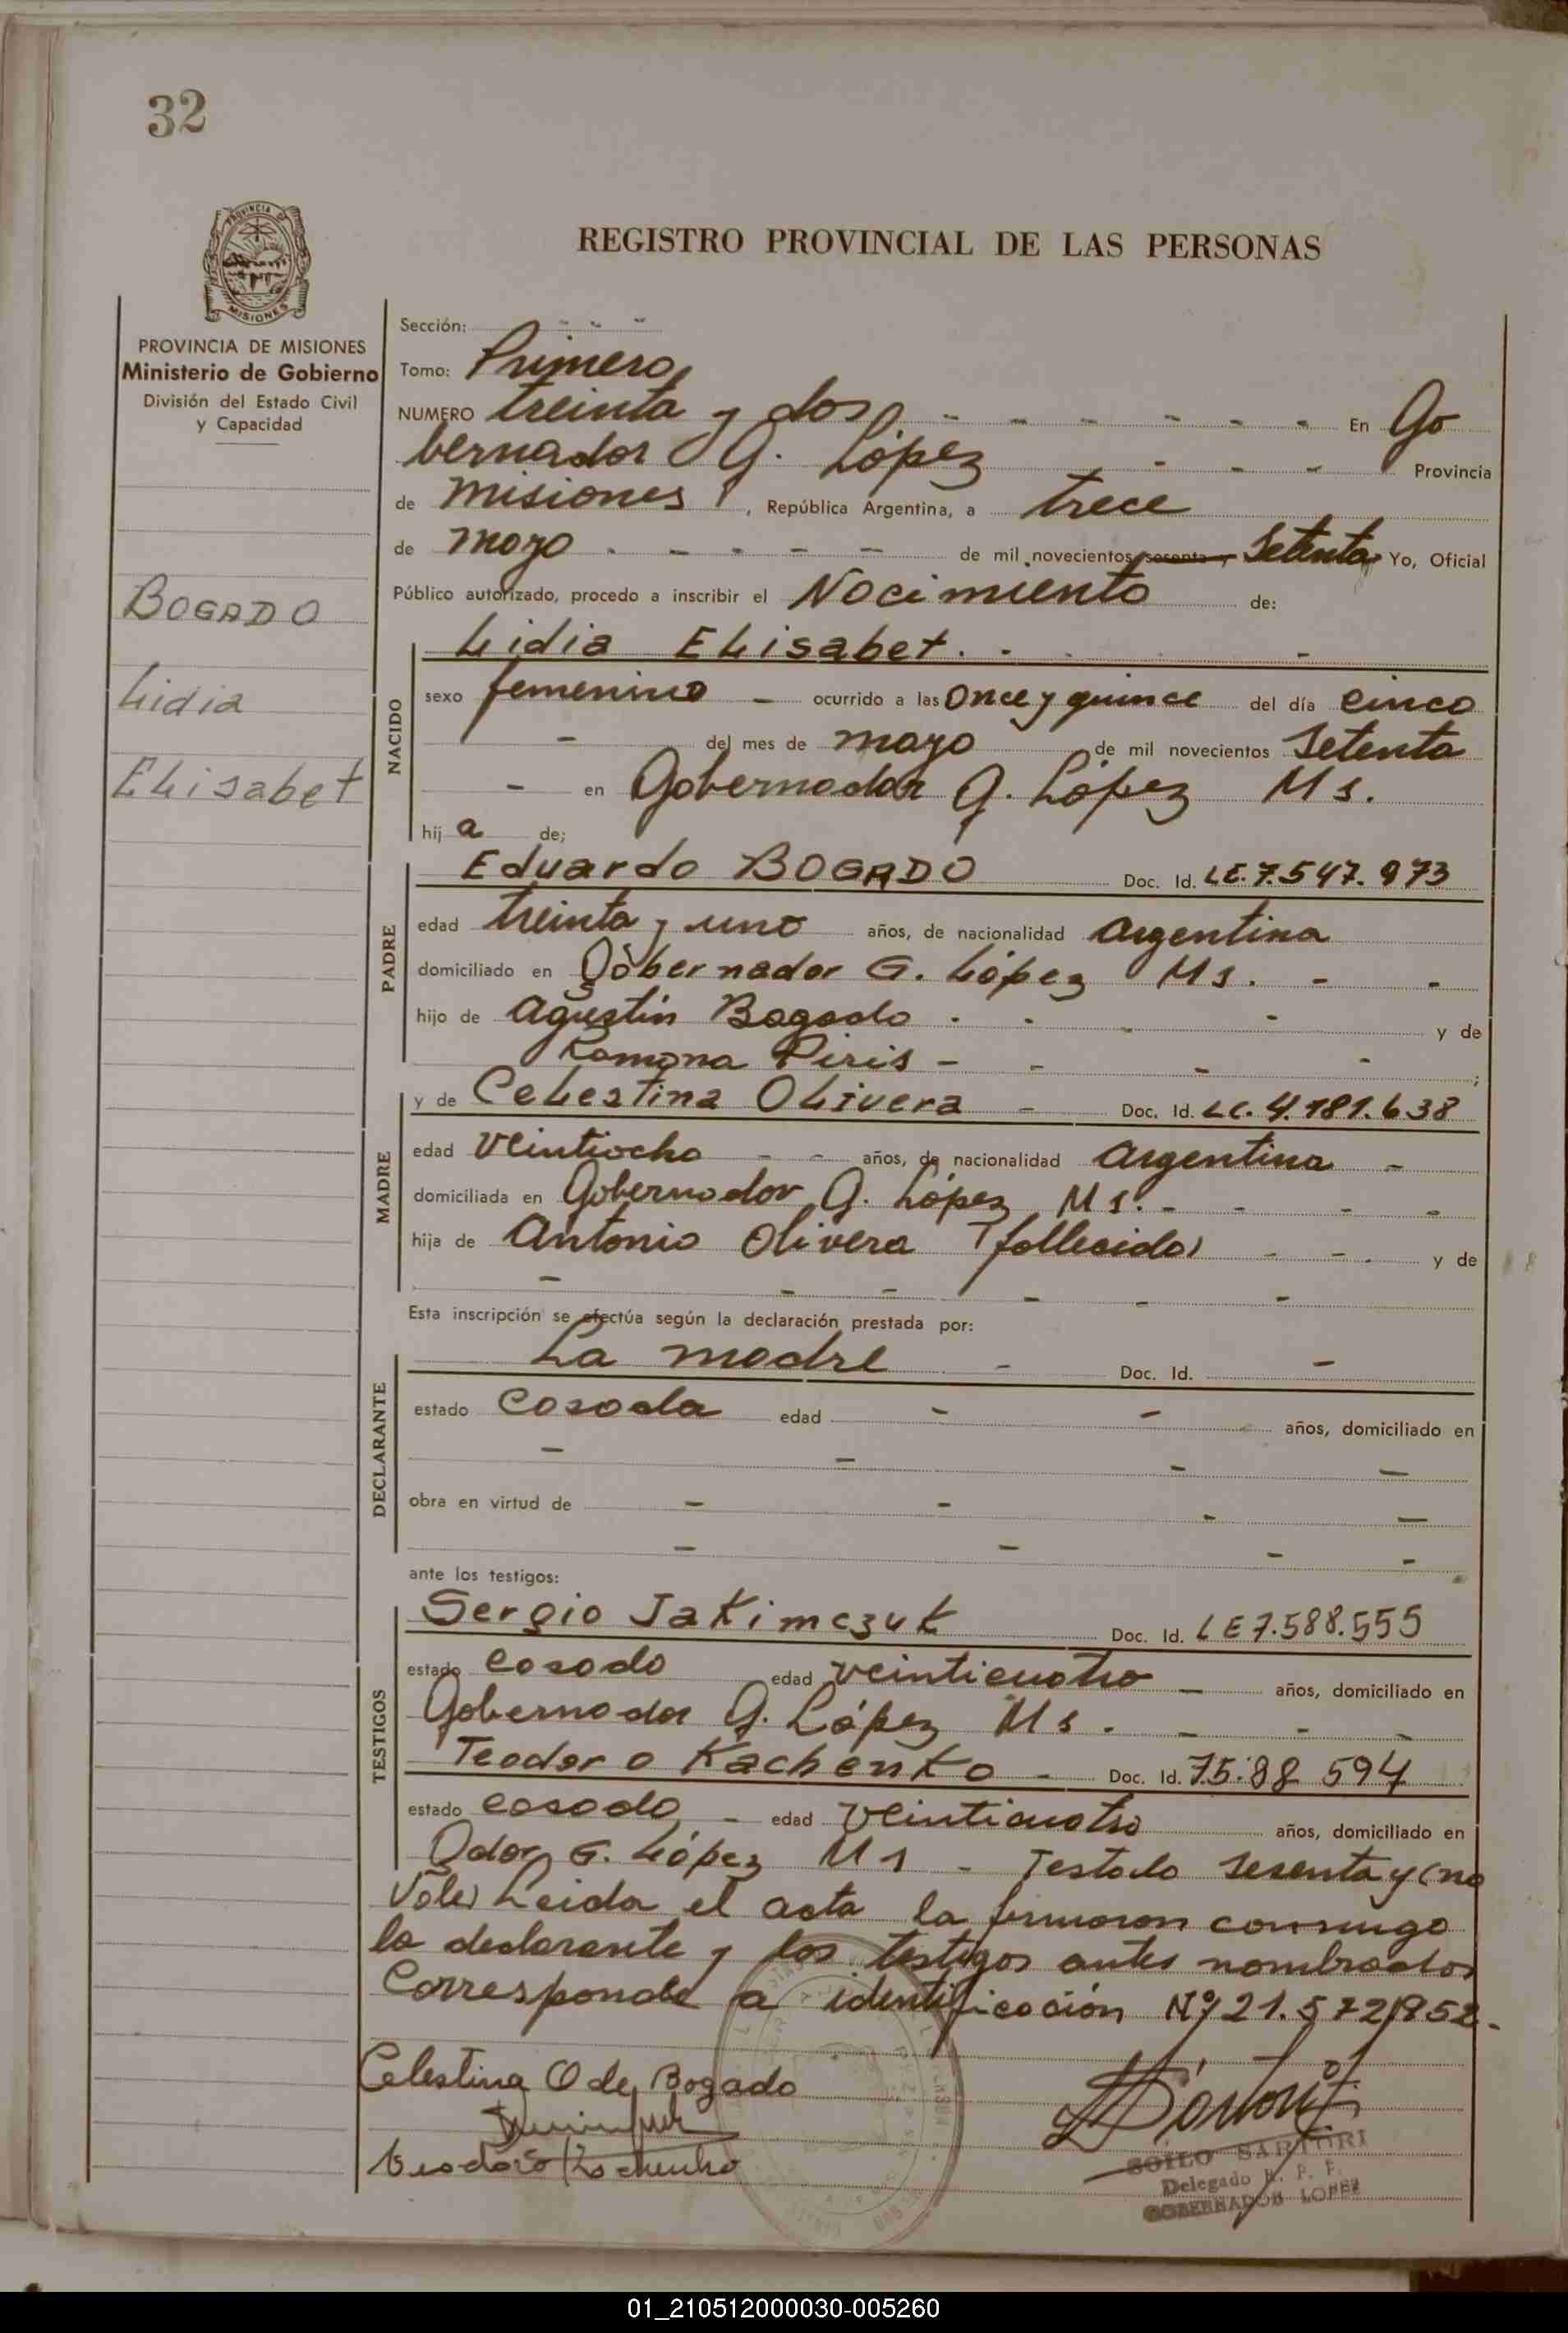 32
PROVINCIA DE
MISIONES
REGISTRO PROVINCIAL DE LAS PERSONAS
PROVINCIA DE MISIONES
Ministerio de Gobierno
División del Estado Civil
y Capacidad
BOGADO
Lidia
Elisabet
Sección: - - -
Tomo: Primero
NUMERO treinta y dos - - - - - - En Go
bernador G. López - - - - Provincia
de Misiones, República Argentina, a trece
de mayo - - - - - de mil novecientos sesenta y Setenta Yo, Oficial
Público autorizado, procedo a inscribir el Nacimiento de:
NACIDO
Lidia Elisabet. - - -
sexo femenino - ocurrido a las Once y quince del día cinco
- del mes de mayo de mil novecientos Setenta
- en Gobernador G. López Ms.
hij a de;
PADRE
Eduardo BOGADO Doc. Id. LE. 7.547.973
edad treinta y uno años, de nacionalidad argentina
domiciliado en Gobernador G. López Ms. - -
hijo de Agustín Bogado - - - - y de
Ramona Piris - - - - ;
MADRE
y de Celestina Olivera - Doc. Id. LC. 4.181.638
edad Veintiocho - - años, de nacionalidad argentina -
domiciliada en Gobernador G. López Ms. - - - -
hija de Antonio Olivera (fallecido) - - - y de
- - - - - -
Esta inscripción se efectúa según la declaración prestada por:
DECLARANTE
La madre - Doc. Id. -
estado Casada edad - - años, domiciliado en
- - - -
obra en virtud de - - - -
- - - -
ante los testigos:
TESTIGOS
Sergio Jakimczuk Doc. Id. LE 7.588.555
estado Casado edad veinticuatro - años, domiciliado en
Gobernador G. López Ms. - - -
Teodoro Kachenko - Doc. Id. 75.88 594
estado casado - edad veinticuatro años, domiciliado en
Gdor G. López Ms - Testado sesenta y (no
Vale) Leida el acta la firmaron conmigo
la declarante y los testigos antes nombrados
Corresponde a identificación Nº 21.572.852.-
Celestina O de Bogado
SOILO SARTORI
Delegado R. P. P.
GOBERNADOR LOPEZ
01_210512000030-005260